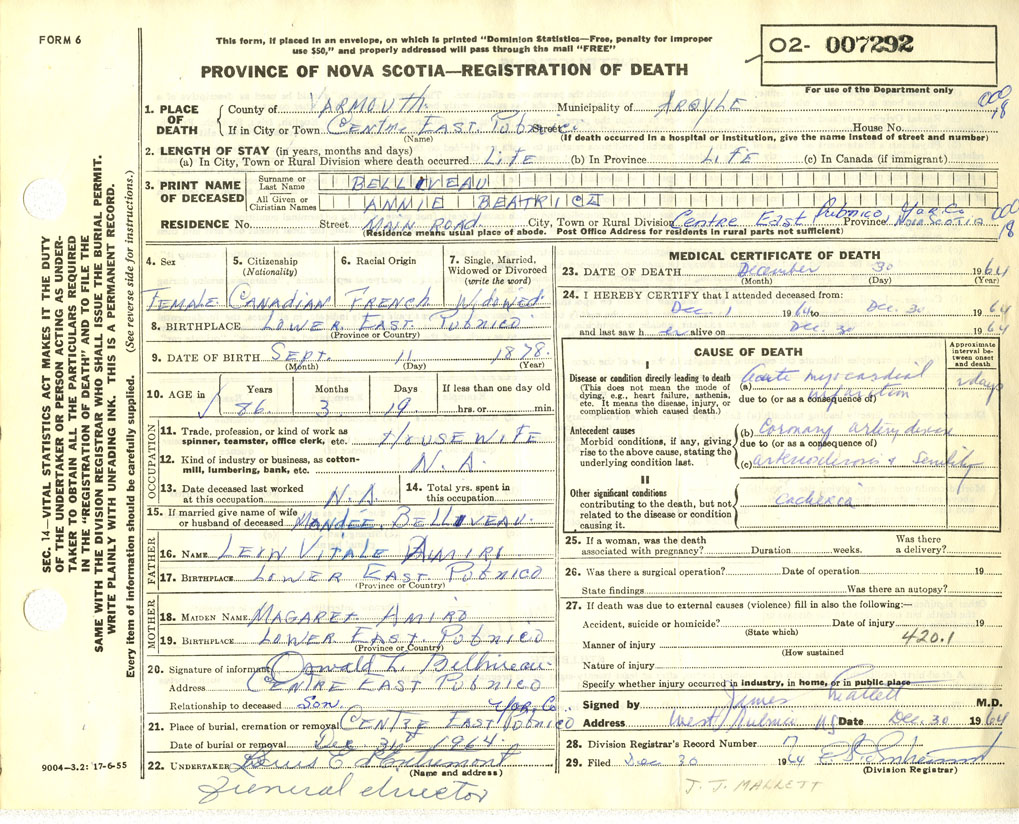 FORM 6
This form, if placed in an envelope, on which is printed "Dominion Statistics—Free, penalty for improper
use $50," and properly addressed will pass through the mail "FREE"
PROVINCE OF NOVA SCOTIA—REGISTRATION OF DEATH
02- 007292
For use of the Department only
SEC. 14—VITAL STATISTICS ACT MAKES IT THE DUTY
OF THE UNDERTAKER OR PERSON ACTING AS UNDER-
TAKER TO OBTAIN ALL THE PARTICULARS REQUIRED
IN THE "REGISTRATION OF DEATH" AND TO FILE THE
SAME WITH THE DIVISION REGISTRAR WHO SHALL ISSUE THE BURIAL PERMIT.
WRITE PLAINLY WITH UNFADING INK. THIS IS A PERMANENT RECORD.
Every item of information should be carefully supplied. (See reverse side for instructions.)
1. PLACE OF DEATH County of YARMOUTH Municipality of ARGYLE
If in City or Town CENTRE EAST PUBNICO Street House No.
(Name) (If death occurred in a hospital or institution, give the name instead of street and number)
2. LENGTH OF STAY (in years, months and days)
(a) In City, Town or Rural Division where death occurred LIFE (b) In Province LIFE (c) In Canada (if immigrant)
3. PRINT NAME OF DECEASED Surname or Last Name BELLIVEAU
All Given or Christian Names ANNIE BEATRICE
RESIDENCE No. Street MAIN ROAD City, Town or Rural Division Centre East Pubnico Yar. Co Province NOVA SCOTIA
(Residence means usual place of abode. Post Office Address for residents in rural parts not sufficient)
4. Sex 5. Citizenship (Nationality) 6. Racial Origin 7. Single, Married, Widowed or Divorced (write the word)
FEMALE CANADIAN FRENCH WIDOWED
8. BIRTHPLACE LOWER EAST PUBNICO
(Province or Country)
9. DATE OF BIRTH SEPT. 11 1878.
(Month) (Day) (Year)
10. AGE in Years Months Days If less than one day old
86. 3. 19. hrs. or min.
OCCUPATION
11. Trade, profession, or kind of work as spinner, teamster, office clerk, etc. HOUSEWIFE
12. Kind of industry or business, as cotton-mill, lumbering, bank, etc. N. A.
13. Date deceased last worked at this occupation N. A. 14. Total yrs. spent in this occupation
15. If married give name of wife or husband of deceased MANDÉE BELLIVEAU.
FATHER
16. NAME LEON VITALE AMIRO
17. BIRTHPLACE LOWER EAST PUBNICO
(Province or Country)
MOTHER
18. MAIDEN NAME MAGARET AMIRO
19. BIRTHPLACE LOWER EAST PUBNICO
(Province or Country)
20. Signature of informant Oswald L. Belliveau
Address CENTRE EAST PUBNICO
Relationship to deceased SON. YAR. CO.
21. Place of burial, cremation or removal CENTRE EAST PUBNICO
Date of burial or removal Dec 31st 1964.
22. UNDERTAKER Louis E. d'Entremont
(Name and address)
funeral director
9004–3.2: 17-6-55
MEDICAL CERTIFICATE OF DEATH
23. DATE OF DEATH December 30 1964
(Month) (Day) (Year)
24. I HEREBY CERTIFY that I attended deceased from:
Dec. 1 1964 to Dec. 30 1964
and last saw her alive on Dec. 30 1964
CAUSE OF DEATH
Approximate interval between onset and death
I
Disease or condition directly leading to death
(This does not mean the mode of dying, e.g., heart failure, asthenia, etc. It means the disease, injury, or complication which caused death.)
(a) Acute myocardial infarction days
due to (or as a consequence of)
Antecedent causes
Morbid conditions, if any, giving rise to the above cause, stating the underlying condition last.
(b) Coronary artery disease
due to (or as a consequence of)
(c) arteriosclerosis & senility
II
Other significant conditions
contributing to the death, but not related to the disease or condition causing it.
cachexia
25. If a woman, was the death associated with pregnancy? Duration weeks. Was there a delivery?
26. Was there a surgical operation? Date of operation 19
State findings Was there an autopsy?
27. If death was due to external causes (violence) fill in also the following:—
Accident, suicide or homicide? Date of injury 19
(State which)
420.1
Manner of injury
(How sustained
Nature of injury
Specify whether injury occurred in industry, in home, or in public place
Signed by James Mallett M.D.
Address West Pubnico NS Date Dec. 30 1964
28. Division Registrar's Record Number 7
29. Filed Dec 30 1964
(Division Registrar)
J. J. MALLETT